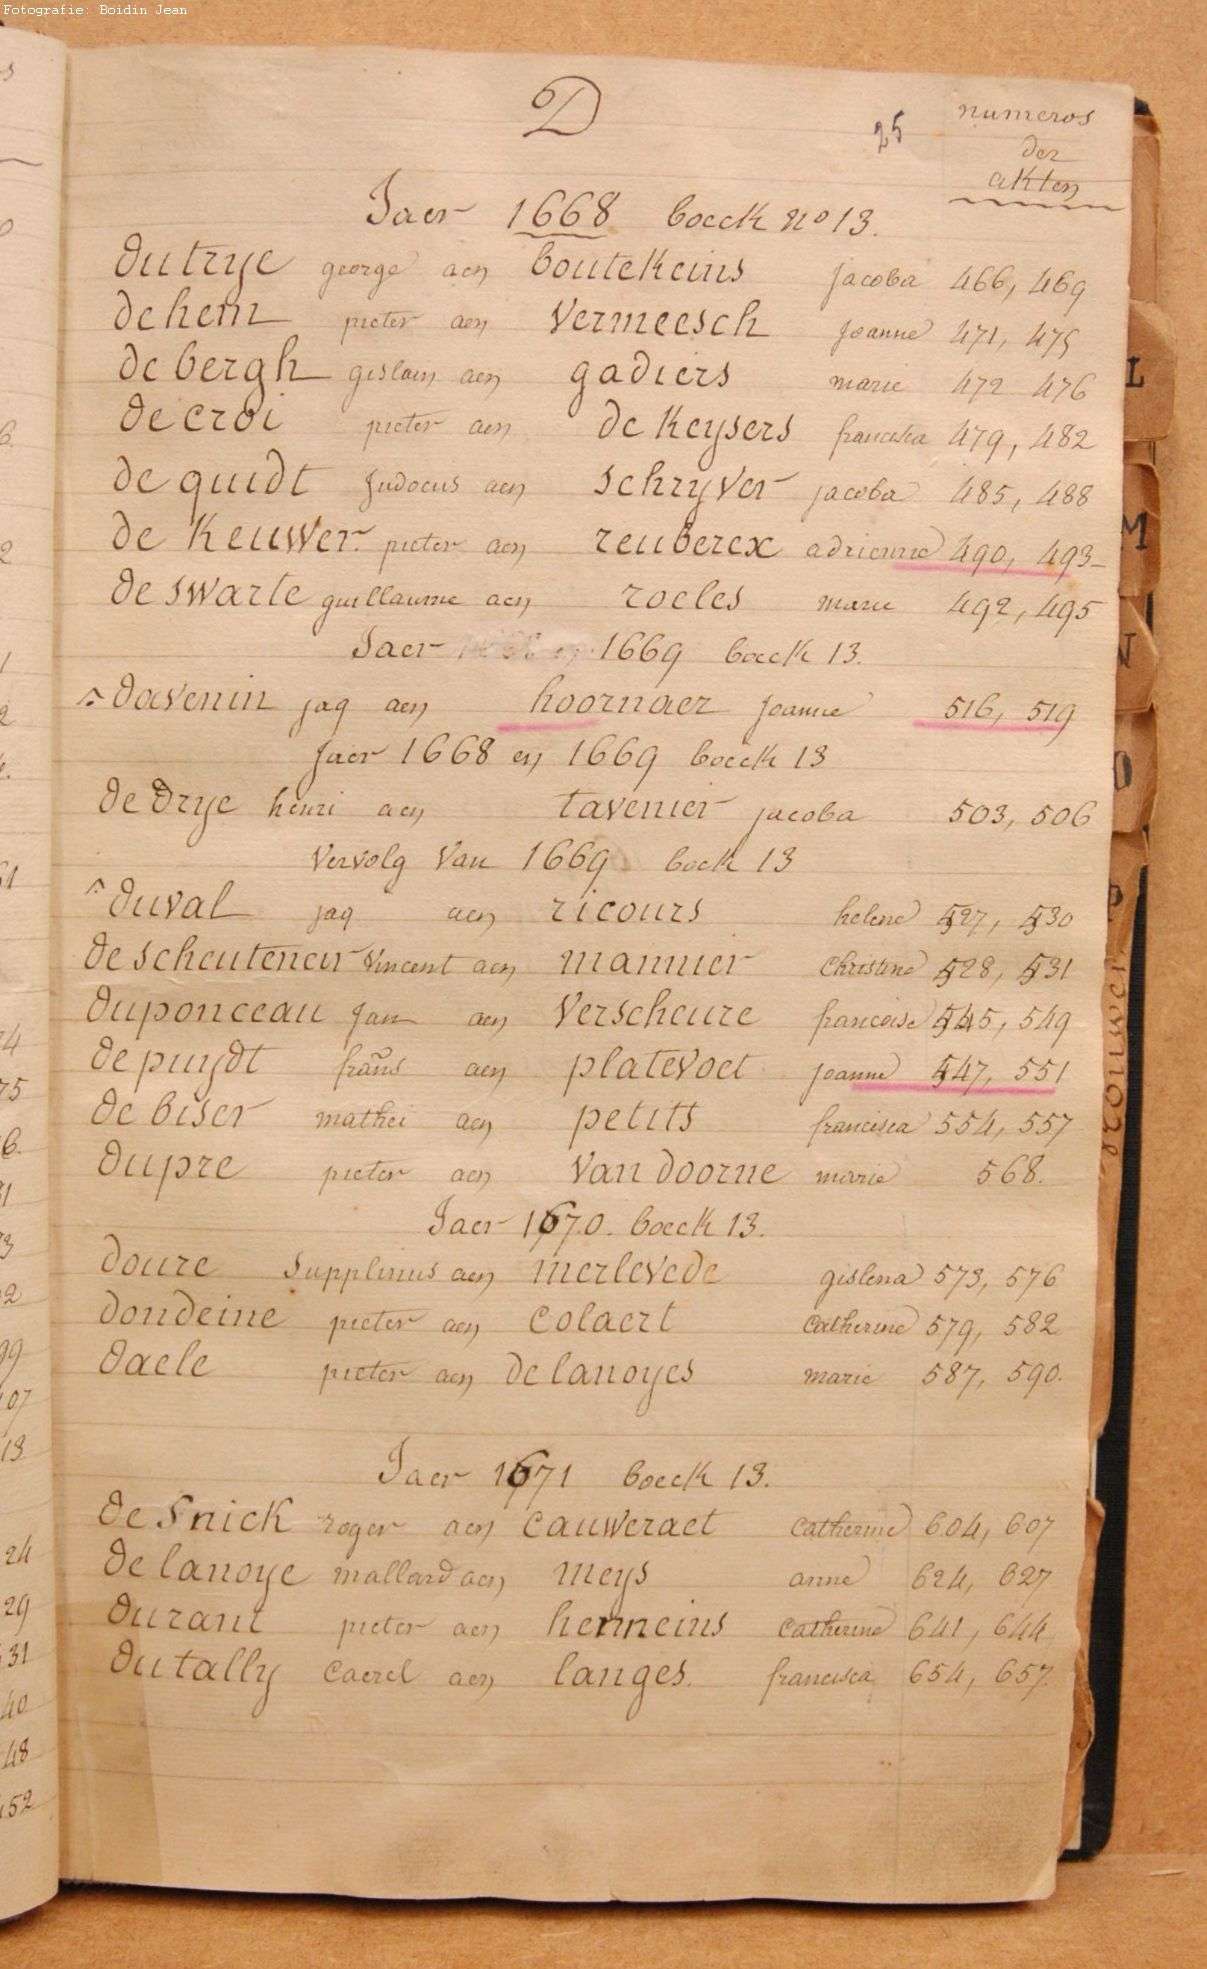 Fotografie: Boidin Jean
D
25
numeros
der
akten
Jaer 1668 boeck no 13.
dutrye george aen boutekeins jacoba 466, 469
de hem pieter aen vermeesch joanne 471, 475
de bergh gislain aen gadiers marie 472 476
de croi pieter aen de Keysers francisca 479, 482
de quidt judocus aen schryver jacoba 485, 488
de Keuwer. pieter aen reuberex adrienne 490, 493
de swarte guillaume aen roeles marie 492, 495
Jaer 1669 boeck 13.
davenin jaq aen hoornaer joanne 516, 519
Jaer 1668 en 1669 boeck 13
de drye henri aen tavenier jacoba 503, 506
vervolg van 1669 boek 13
duval jaq aen ricours helene 527, 530
de scheuteneir vincent aen mannier christine 528, 531
duponceau jan aen verscheure francoise 545, 549
de puydt frans aen platevoet joanne 547, 551
de biser mathei aen petits francisca 554, 557
dupre pieter aen van doorne marie 568.
Jaer 1670. boeck 13.
doure supplinus aen merlevede gislena 573, 576
dondeine pieter aen colaert catherine 579, 582
daele pieter aen de lanoyes marie 587, 590.
Jaer 1671 boeck 13.
de snick roger aen cauweraet catherine 604, 607
de lanoye mallard aen meys anne 624, 627
durant pieter aen henneins catherine 641, 644
dutally Caerel aen langes. francisca 654, 657.
L
M
N
O
P